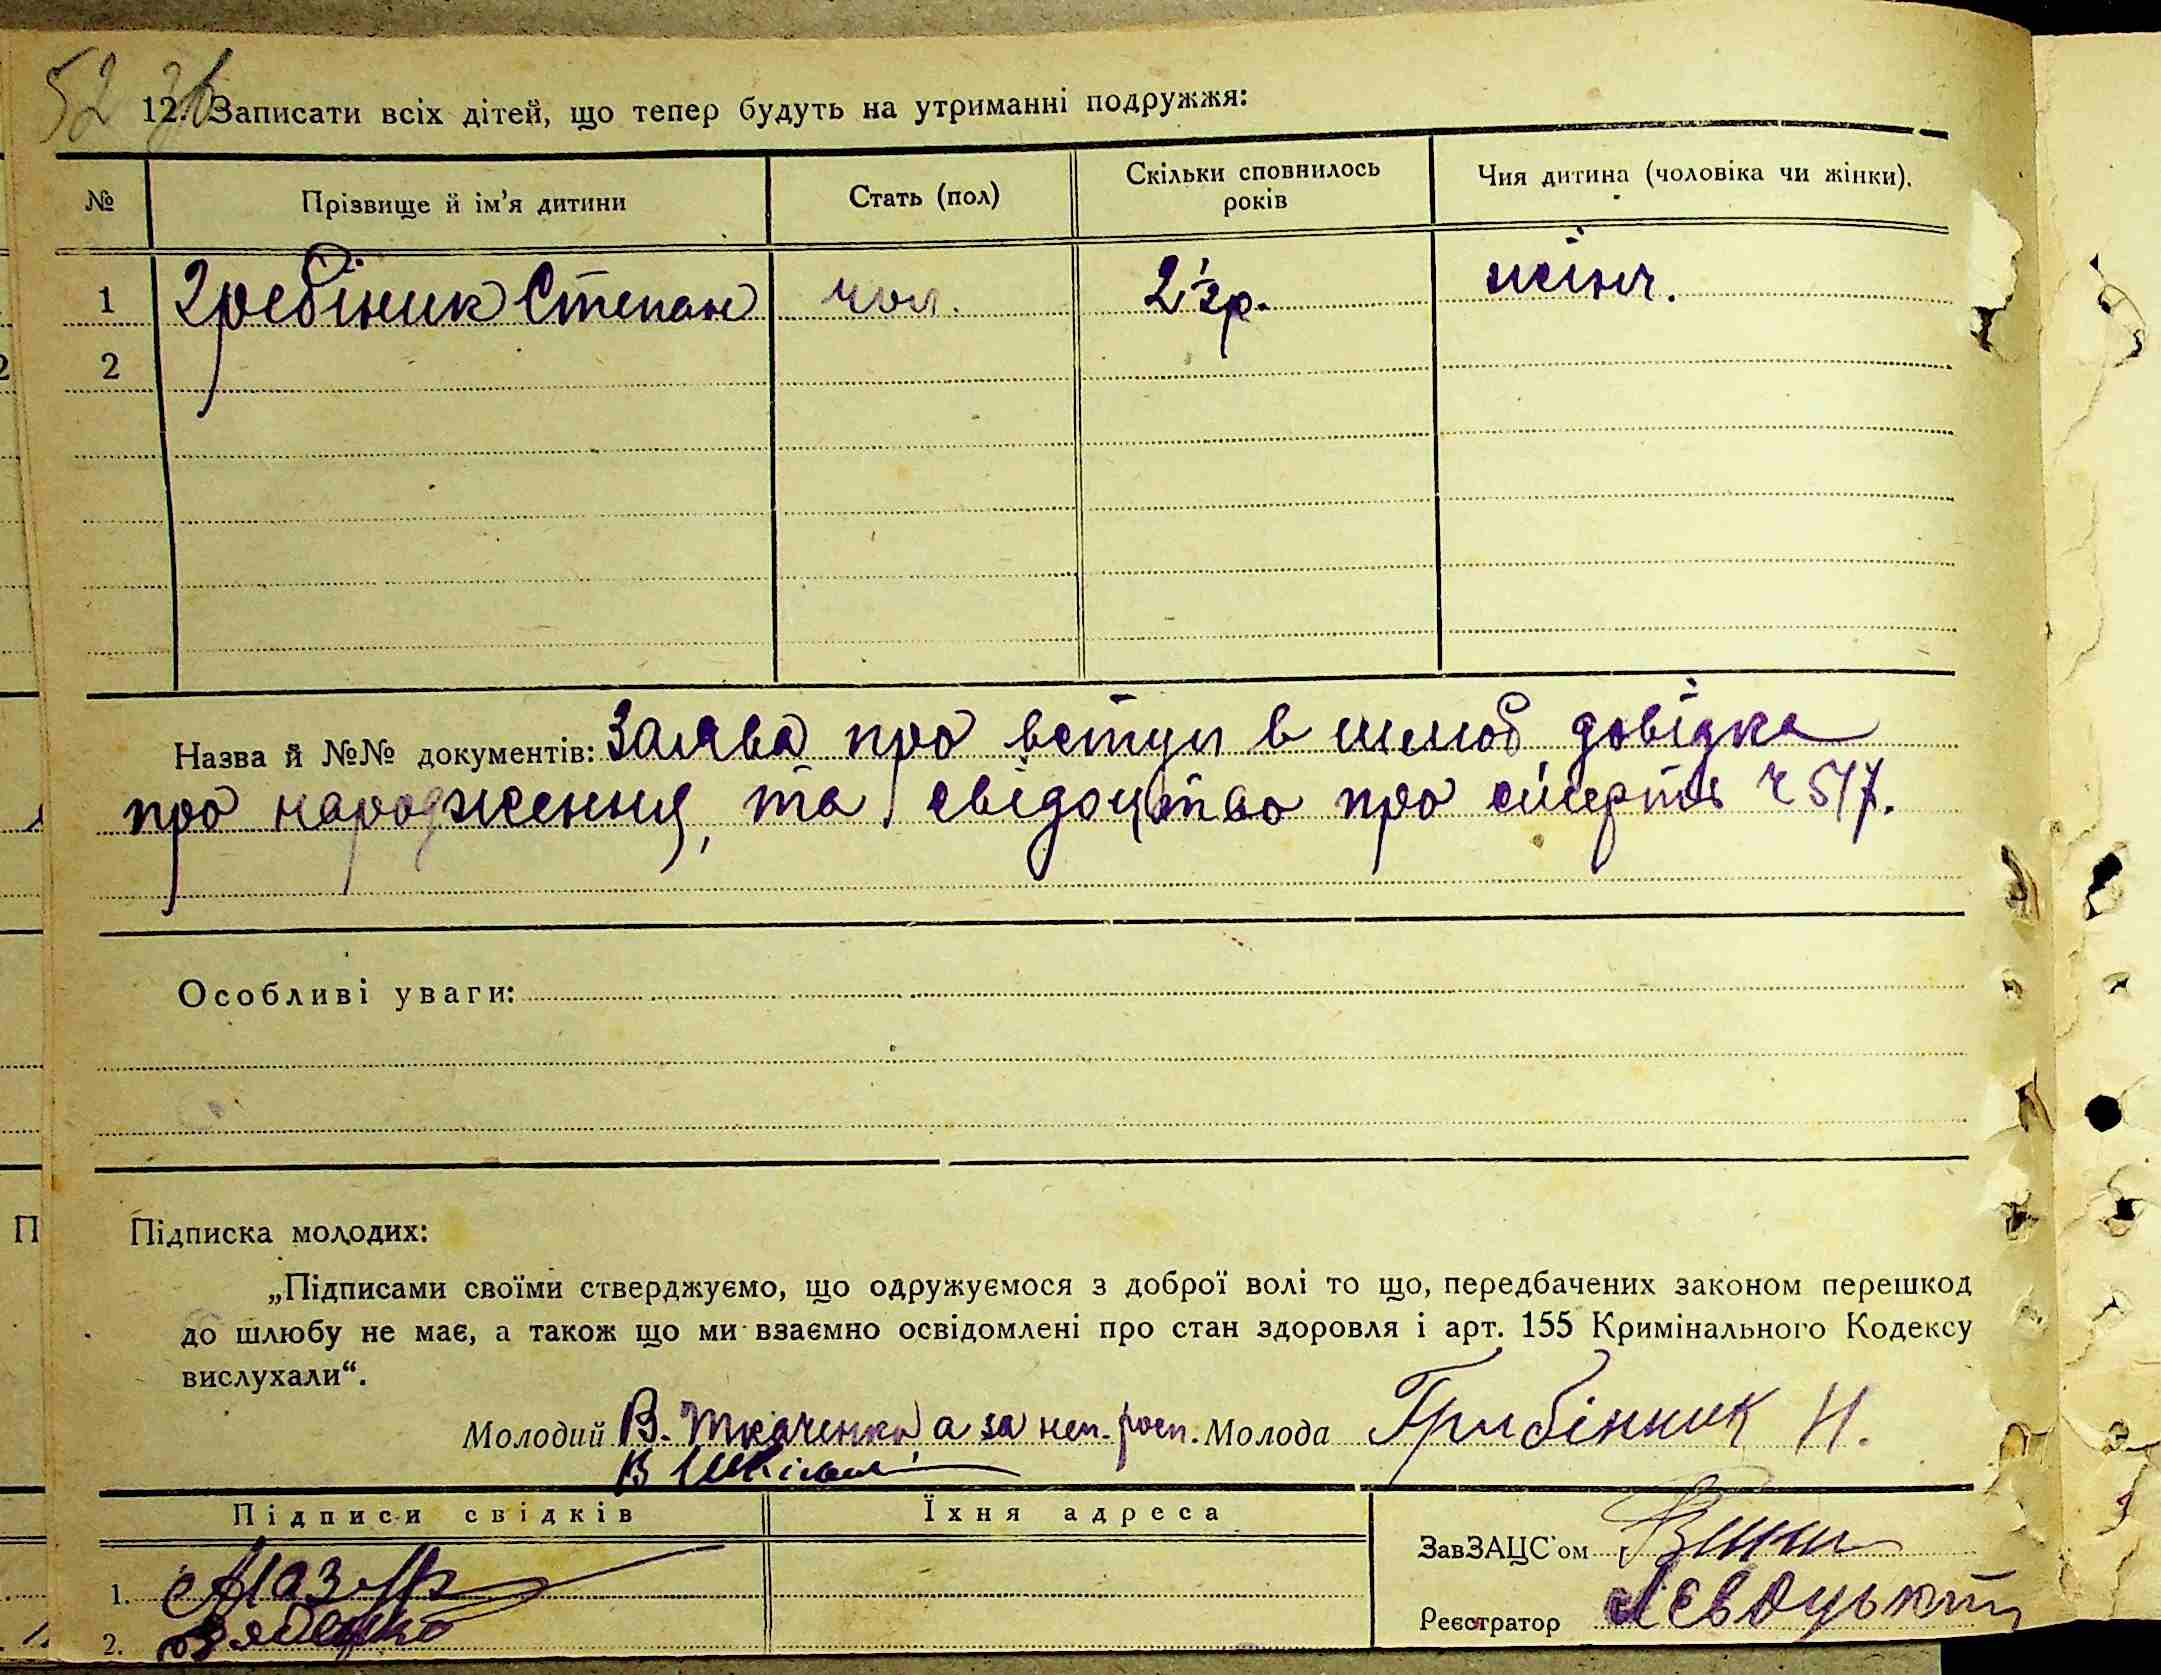 52 зв
12. Записати всіх дітей, що тепер будуть на утриманні подружжя:
№ Прізвище й ім'я дитини Стать (пол) Скільки сповнилось років Чия дитина (чоловіка чи жінки).
1 Гребіник Степан чол. 2 1/2 р. жінч.
2
Назва й №№ документів: Заява про вступ в шлюб, довідка
про народження, та свідоцтво про смерть ч 517.
Особливі уваги:
Підписка молодих:
„Підписами своїми стверджуємо, що одружуємося з доброї волі то що, передбачених законом перешкод
до шлюбу не має, а також що ми взаємно освідомлені про стан здоровля і арт. 155 Кримінального Кодексу
вислухали“.
Молодий В. Ткаченко, а за неп. росп. Молода Грибінник Н.
В
Підписи свідків Їхня адреса
ЗавЗАЦС'ом
1. Мазур
Реєстратор Лєвоцький
2.
П
2